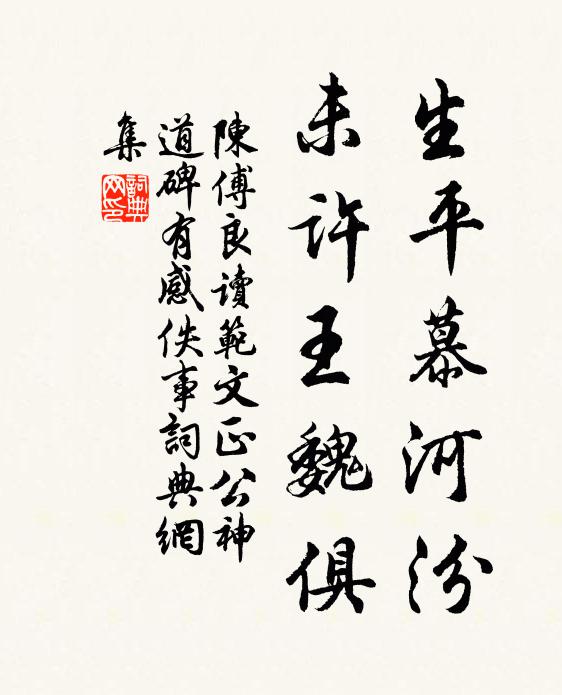 生平慕河汾
未許王魏俱
陳傅良讀範文正公神
道碑有感佚事詞典網
集
詞典網印